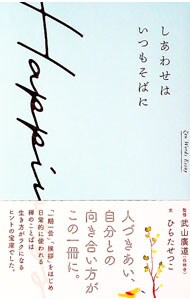 しあわせは
いつもそばに
Zen Words Essay
Happin
人づきあい、
自分との
向き合い方が
この一冊に。
「一期一会」「挨拶」をはじめ
日常的に使われる
禅のことばは、
生き方がラクになる
ヒントの宝庫でした。
監修 武山廣道
文 ひらたせつこ